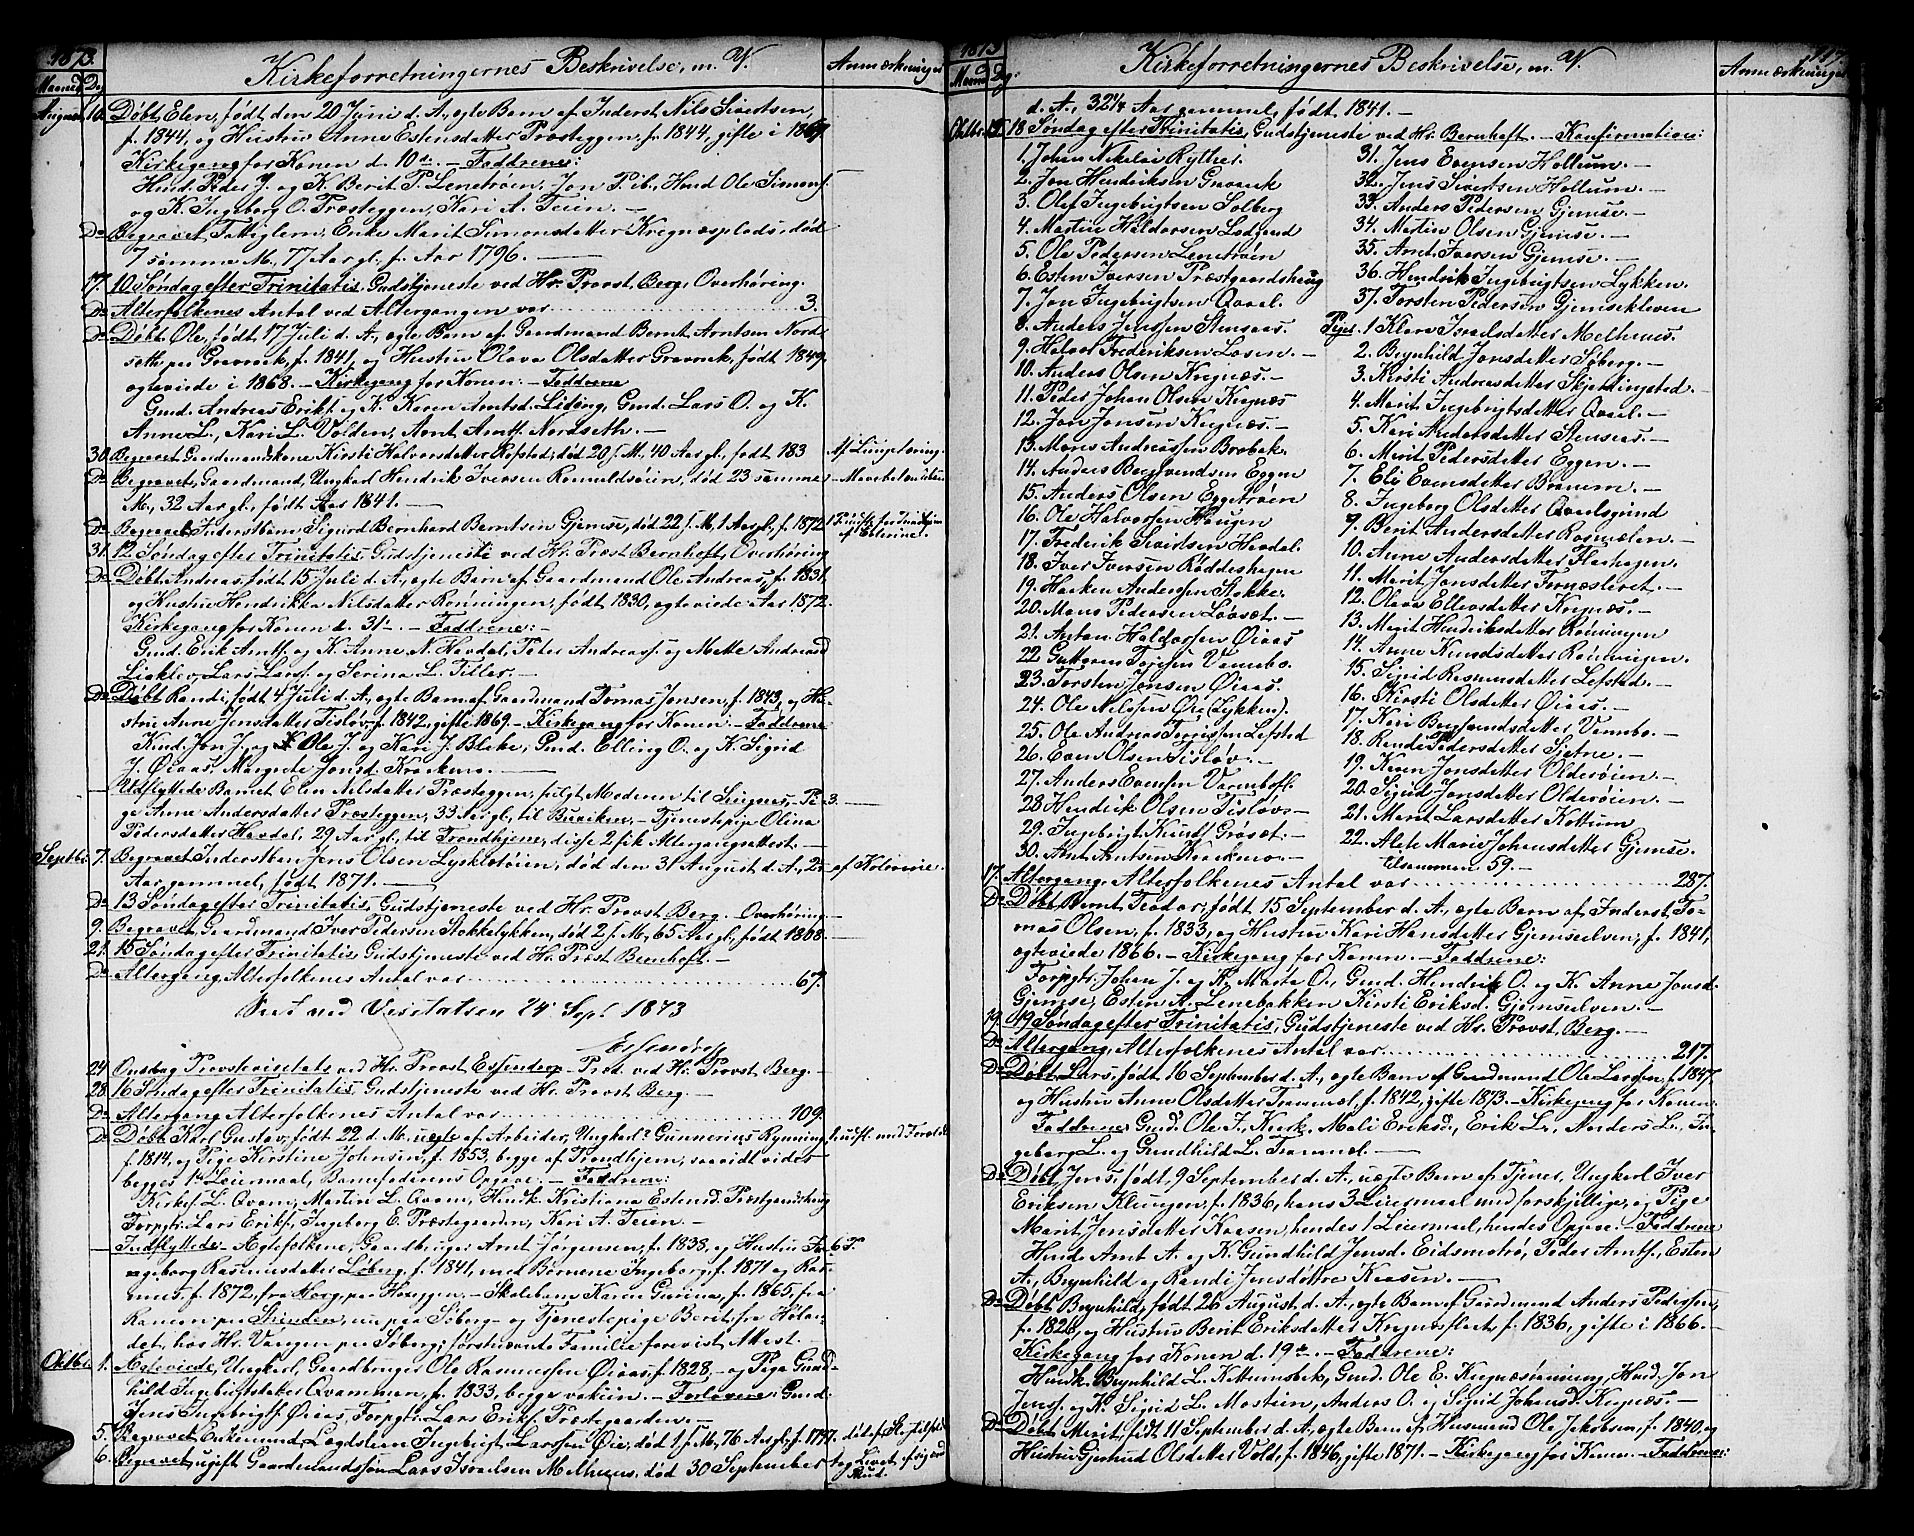 1873.
Kirkeforretningernes Beskrivelse, m. V.
Anmærkninger
Maaned Dag
August 10. Døbt Elen, født den 20 Juni d. A., ægte Barn af Inderst Nils Sivertsen,
f. 1844, og Hustru Anne Estensdatter Præsteggen, f. 1844, gifte i 1869.
Kirkegang for Konen d. 10de. – Faddrene:
Husm. Peder J. og K. Berit P. Lenetrøen, Jon P. ib., Husmd Ole Simons.
og K. Ingeborg O. Præsteggen, Kari A. Teien. –
Do Begravet Fattiglem, Enke Marit Simonsdatter Kregnæsplads, død
7 samme M., 77 Aar gl., f. Aar 1796. –
17. 10 Søndag efter Trinitatis, Gudstjeneste ved Hr. Provst Berg. Overhøring.
Do Alterfolkenes Antal ved Altergangen var 3.
Do Døbt Ole, født 17 Juli d. A., ægte Barn af Gaardmand Bernt Arntsen Nord-
seth paa Gravrak, f. 1841, og Hustru Olava Olsdatter Gravrak, født 1849,
ægteviede i 1868. – Kirkegang for Konen. – Faddrene
Gmd. Andreas Eriks. og K. Karen Arntsd. Liding, Gmd. Lars O. og K.
Anne L., Kari L. Volden, Arnt Arnts. Nordseth. –
30. Begravet Gaardmandskone Kirsti Halvorsdatter Refstad, død 20 s. M. 40 Aar gl., født 183
Af Lungetæring.
Do Begravet, Gaardmand, Ungkarl Hendrik Iversen Romuldsøien, død 23 samme
M., 32 Aar gl., født Aar 1841. –
Do Begravet Inderstbarn Sigurd Bernhard Berntsen Gjemse, død 22 s. M., 1 Aar gl., f. 1872
31. 12 Søndag efter Trinitatis, Gudstjeneste ved Hr. Præst Bernhoft, Overhøring
Do Døbt Andreas, født 15 Juli d. A., ægte Barn af Gaardmand Ole Andreas., f. 1831,
og Hustru Hendrikka Nilsdatter Rønningen, født 1830, ægteviede Aar 1872.
Kirkegang for Konen d. 31. – Faddrene: –
Gmd. Erik Arnts. og K. Anne N. Hovdal, Peter Andreas. og Mette Andreasd
Lars Lars. og Serina L. Tiller. –
Do Døbt Randi, født 4 Juli d. A., ægte Barn af Gaardmand Tomas Jonsen, f. 1843, og Hu-
stru Anne Jensdatter Tisløv, f. 1842, gifte 1869. – Kirkegang for Konen: – Faddrene
Gmd. Jon J. og K Ole J. og Kari J. Bleke, Gmd. Elling O. og K. Sigrid
J. Øiaas, Margrete Jonsd. Kraakmo. –
Udflyttede Barnet Elen Nilsdatter Præsteggen, fulgt Moderen til Singsaas, Pi- 3. –
ge Anne Andersdatter Præsteggen, 33 Aar gl., til Buviken, – Tjenestepige Olina
Pedersdatter Hovdal, 29 Aar gl., til Trondhjem, disse 2 fik Altergangsattest. –
Septbr 7. Begravet Inderstbarn Jens Olsen Lyskletøien, død den 31 August d. A., 2
Aar gammel, født 1871. –
af Kolerine.
Do 13 Søndag efter Trinitatis, Gudstjeneste ved Hr. Provst Berg. – Overhøring.
9. Begravet, Gaardmand Iver Pedersen Stokkelykken, død 2 s. M., 65 Aar gl., født 1808. –
21. 15 Søndag efter Trinitatis, Gudstjeneste ved Hr. Præst Bernhoft. –
Do Altergang, Alterfolkenes Antal var 67.
Seet ved Visitatsen 24 Sept 1873
Essendrop
24 Onsdag Provstevisitats ved Hr. Provst Essendrop – Præd. ved Hr. Provst Berg. –
28. 16 Søndag efter Trinitatis, Gudstjeneste ved Hr. Provst Berg –
Do Altergang, Alterfolkenes Antal var 109.
Do Døbt Karl Gustav, født 22 d. M., uægte af Arbeider, Ungkarl? Gunnerius Rynning,
f. 1814, og Pige Kirstine Johnsen, f. 1853, begge af Trondhjem, saavidt vides
begges 1te Leiermaal, Barnefaderens Opgave. – Faddrene:
Kirkes. L. Qvam, Martin L. Qvam, Husmk. Kristiana Estensd. Præstgaardshaug
Forpgtr. Lars Eriks., Ingeborg E. Præstegaarden, Kari A. Teien. –
Indflyttede. – Ægtefolkene, Gaardbruger Arnt Jørgensen, f. 1838, og Hustru In- 6 P.
geborg Rasmusdatter Loberg, f. 1841, med Børnene Ingeborg, f. 1871 og Ras-
mus, f. 1872, fra Horg, paa Hauggen, – Skolebarn Karin Gurina, f. 1865, fra
Ranem paa Strinden, nu paa Søberg – og Tjenestepige Berit fra Hølan-
det, hos Hr. Vanggen paa Søberg; førstnævnte Familie forevist Attest. –
Oktbr. 1. Ægteviede, Ungkarl, Gaardbruger Ole Rasmussen Øiaas, f. 1828, – og Pige Gund-
hild Ingebrigtsdatter Qvammen, f. 1833, begge vaccin. – Forlovere: Gmd.
Jens Ingebrigts. Øiaas, Forpgtr. Lars Eriks. Præstegaarden. –
5. Begravet Enkemand, Lægdslem Ingebrigt Larssen Øie, død 1 s. M., 76 Aar gl., f. 1797.
6. Begravet ugift Gaardmandssøn Lars Israelsen Melhuus, død 30 September
1873
Kirkeforretningernes Beskrivelse, m. V.
Anmærkninger
117.
Maaned Dag
d. A., 32¼ Aar gammel, født 1841. –
Oktbr 12. 18 Søndag efter Trinitatis, Gudstjeneste ved Hr. Bernhoft. – Konfirmation:
1. Johan Nikolai Ryther.
2. Jon Hendriksen Gravrak
3. Olef Ingebrigtsen Solberg
4. Martin Haldorsen Lodgaard
5. Ole Pedersen Lenetrøen
6. Esten Iversen Præstgaardshaug
7. Jon Ingebrigtsen Qvaal.
8. Anders Jenssen Stensaas.
9. Halvor Frederiksen Losen. –
10. Anders Olsen Kregnæs. –
11. Peder Johan Olsen Kregnæs
12. Jon Jonsen Kregnæs. –
13. Mons Andreassen Brobak.
14. Anders Bersvendsen Eggen
15. Anders Olsen Eggetrøen
16. Ole Halvorsen Haugen
17. Frederik Sivertsen Hovdal.
18. Iver Iversen Røddeshagen
19. Haaken Andersen Stokke.
20. Mons Pedersen Løvset. –
21. Anton Haldorsen Øiaas
22 Guttorm Torsen Vammbo.
23. Torsten Jonsen Øiaas.
24. Ole Nilssen Øie (Lykken).
25. Ole Andreas Torrissen Lefstad
26. Even Olsen Tisløv. –
27. Anders Evensen Varmbofl.
28 Hendrik Olsen Tisløv –
29. Ingebrigt Knuds. Grøset. –
30. Arnt Arntsen Kraakmo. –
31. Jens Evensen Hollum. –
32. Jens Sivertsen Hollum. –
33. Anders Pedersen Gjemse. –
34. Martin Olsen Gjemse. –
35. Arnt Iversen Gjemse. –
36. Hendrik Ingebrigtsen Lykken.
37. Torsten Pedersen Gjemsekleven
Piger. 1 Klara Israelsdatter Melhuus.
2. Brynhild Jonsdatter Søberg. –
3. Kirsti Andreasdatter Skjerdingstad.
4. Marit Ingebrigtsdatter Qvaal. –
5. Kari Andersdatter Stensaas. –
6. Marit Pedersdatter Eggen. –
7. Eli Evensdatter Braaum. –
8. Ingeborg Olsdatter Qvaalsgrind
9. Berit Andersdatter Rosmælen. –
10. Anne Andersdatter Flaahagen.
11. Marit Jonsdatter Fornesleret. –
12. Olava Ellevsdatter Kregnæs. –
13. Marit Hendriksdatter Rønningen
14. Anne Knudsdatter Rønningen. –
15. Sigrid Rasmusdatter Lefstad. –
16. Kirsti Olsdatter Øiaas. –
17. Kari Bersvendsdatter Vammbo. –
18. Randi Pedersdatter Sjetne. –
19. Karen Jonsdatter Olderøien. –
20. Sigrid Jonsdatter Olderøien. –
21. Marit Larsdatter Kottum
22. Alete Marie Johansdatter Gjemse.
tilsammen 59. –
17. Altergang, Alterfolkenes Antal var 287.
Do Døbt Bernt Teodor, født 15 September d. A., ægte Barn af Inderst To-
mas Olsen, f. 1833, og Hustru Kari Hansdatter Gjemselven, f. 1841,
ægteviede 1866. – Kirkegang for Konen. – Faddrene:
Forpgtr. Johan J. og K. Marta O., Gmd. Hendrik O. og K. Anne Jonsd.
Gjemse, Esten A. Lenebakken Kirsti Eriksd. Gjemselven. –
19. 19 Søndag efter Trinitatis, Gudstjeneste ved Hr. Provst Berg. –
Do Altergang, Alterfolkenes Antal var 217.
Do Døbt Lars, født 16 September d. A., ægte Barn af Gaardmand Ole Larssen, f. 1847
og Hustru Anne Olsdatter Trammel, f. 1842, gifte 1873. – Kirkegang for Konen:
Faddrene: Gmd. Ole I., Kusk. Mali Eriksd., Erik L., Anders L., In-
geborg L. og Gundhild L. Trammel. –
Do Døbt Jens, født 9 September d. A., uægte Barn af Tjener, Ungkarl Iver
Eriksen Klungen, f. 1836, hans 3 Leiermaal med forskjellige, og Pige
Marit Jensdatter Kaasen, hendes 1 Leiermaal, hendes Opgave. – Faddrene
Husmd Arnt A. og K. Gundhild Jensd. Eidsmotrø, Peder Arnts., Esten
A., Brynhild og Randi Jensdøttre Kaasen. –
Do Døbt Brynhild, født 26 August d. A., ægte Barn af Gaardmand Anders Pedersen,
f. 1828, og Hustru Berit Eriksdatter Kregnesflaat, f. 1836, gifte i 1866. –
Kirkegang for Konen d. 19de. – Faddrene:
Husmk. Brynhild L. Kottumsbek, Gmd. Ole E. Kregnæsrønning, Husmd. Jon
Jons. og K. Sigrid L. Mostien, Anders O. og Sigrid Johansd. Kregnæs. –
Do Døbt Marit, født 11 September d. A., ægte Barn af Husmand Ole Jakobsen, f. 1840, og
Hustru Gjertrud Olsdatter Vold, f. 1846, gifte 1871. – Kirkegang for Konen – Faddrene: